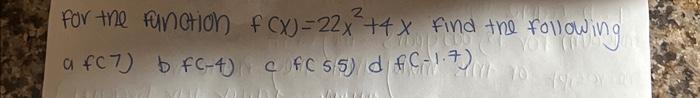 For the function f(x)=22x²+4x find the following
a f(7) b f(-4) c f(5.5) d f(-1.7)